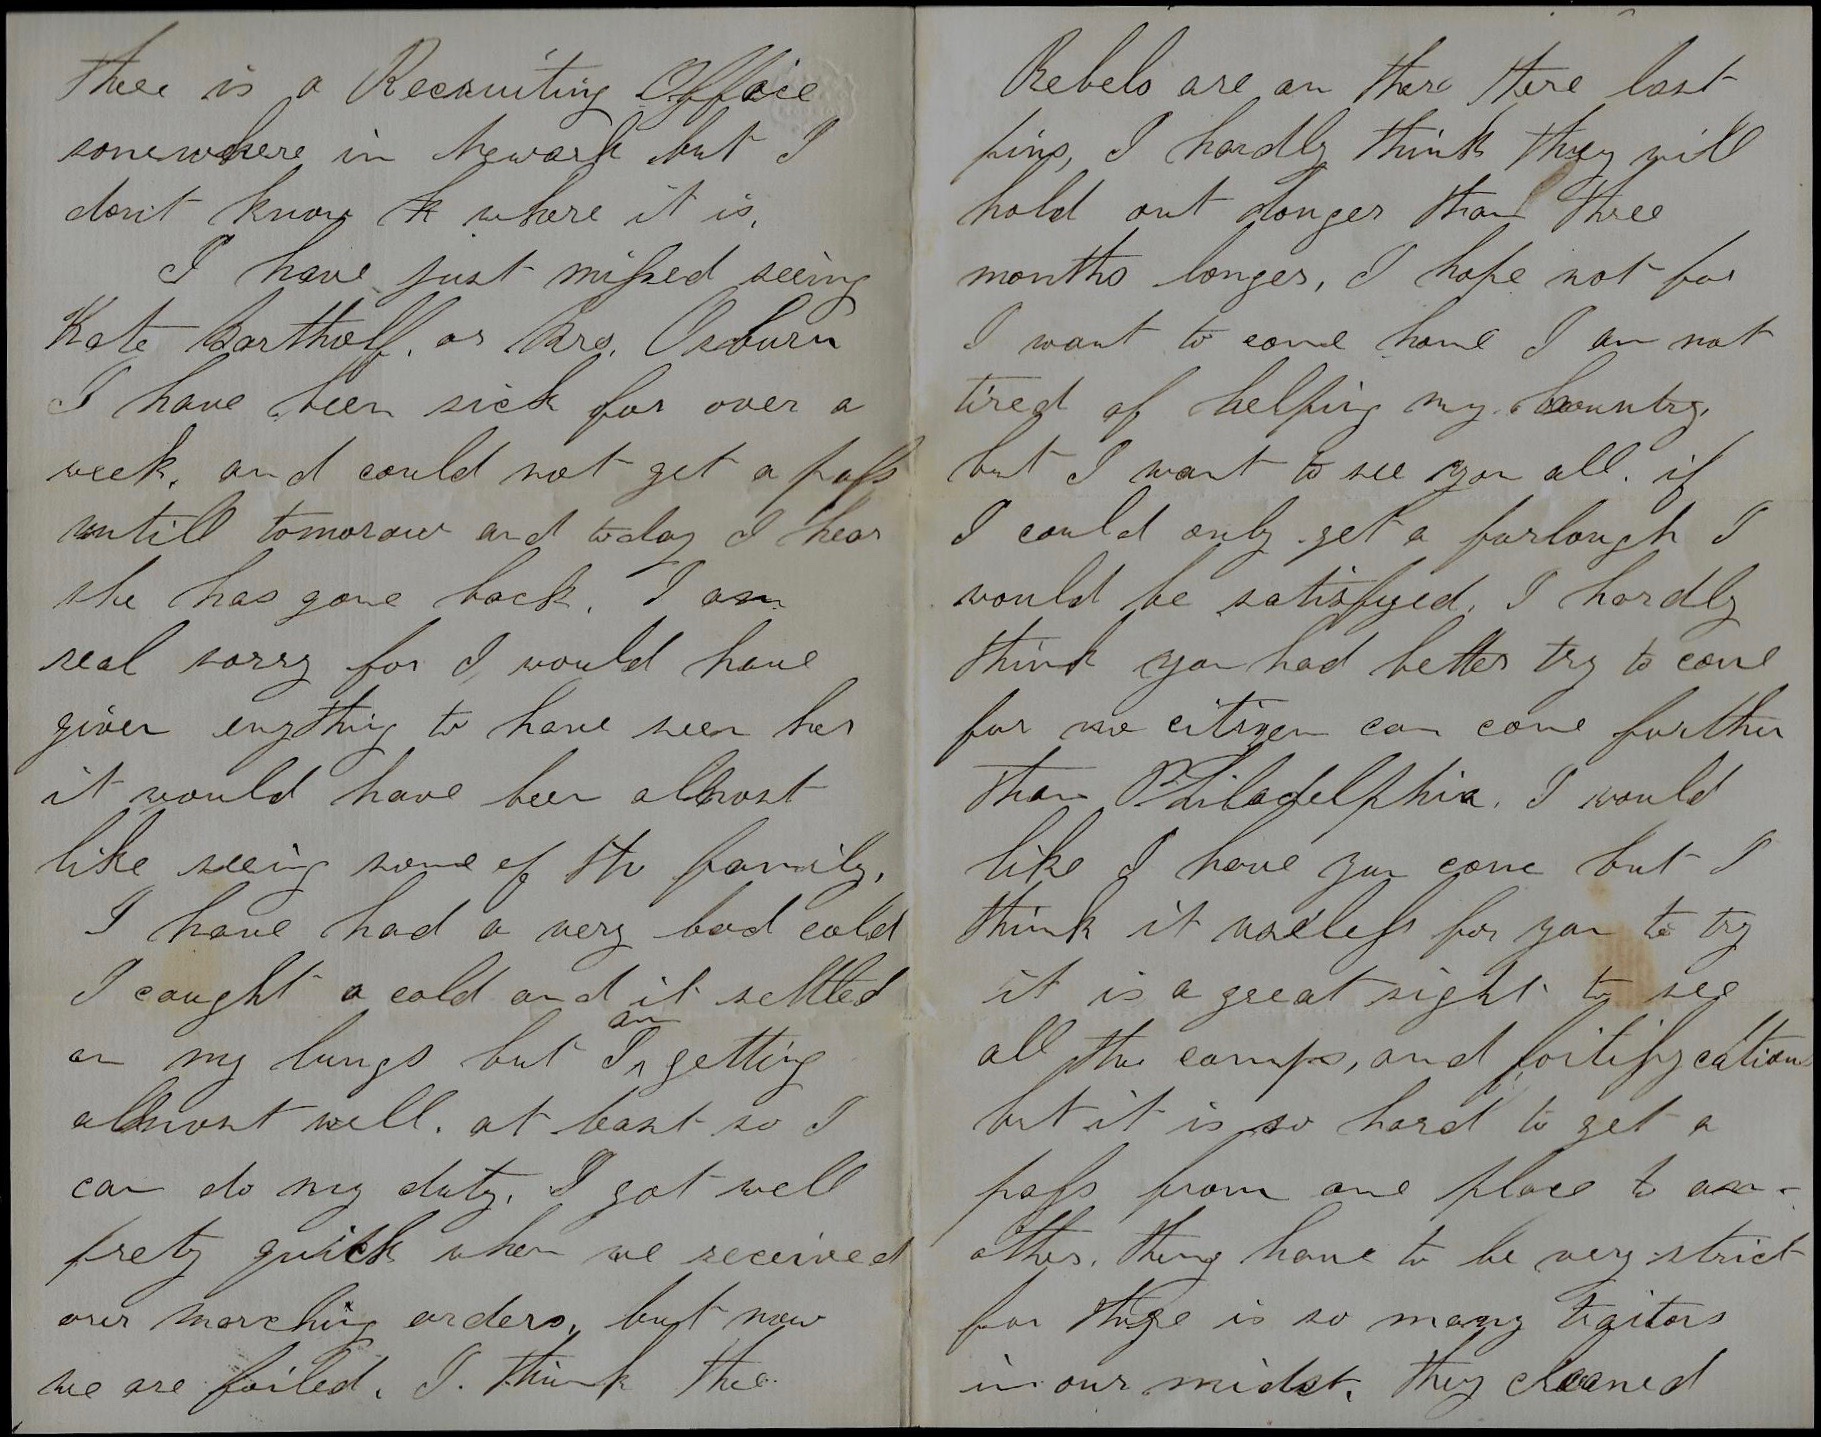 thee is a Recruiting Office
somewhere in Newark but I
dont know where it is.
I have just missed seeing
Kate Bartholf, or Mrs. Osburn
I have been sick for over a
week, and could not get a pass
untill tomorow and today I hear
she has gone back. I am
real sorry for I would have
given enything to have seen her
it would have been allmost
like seeing some of the family.
I have had a very bad cold
I caught a cold and it settled
on my lungs but I am getting
allmost well. at least so I
can do my duty, I got well
prety quick when we received
our marching orders, but now
we are foiled. I think the
Rebels are on there there last
pins, I hardly think they will
hold out longer than three
months longer, I hope not for
I want to come home I am not
tired of helping my country,
but I want to see you all. if
I could only get a furlough I
would be satisfyed, I hardly
think you had better try to come
for no citizen can come further
than Philadelphia. I would
like I have you come but I
think it useless for you to try
it is a great sight to see
all the camps, and fortifycations
but it is so hard to get a
pass from one place to an-
other. they have to be very strict
for there is so many traitors
in our midst. they cleaned